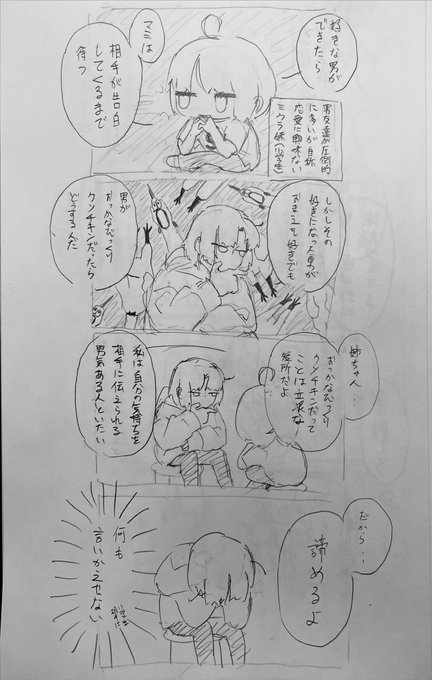 好きな男が
できたら
マミは
相手が告白
してくるまで
待つ
男友達が圧倒的
に多いが自称
恋愛に興味ない
ミウラ妹(小学生)
しかしその
好きになった男が
おまえを好きでも
男が
おっかなびっくり
クソチキンだったら
どうする人だ
姉ちゃん…
おっかなびっくり
クソチキンだって
ことは立派な
短所だよ
私は自分の気持ちを
相手に伝えられる
男気ある人といたい
だから…
諦めるよ
何も
言いかえせない
小学生
相手に